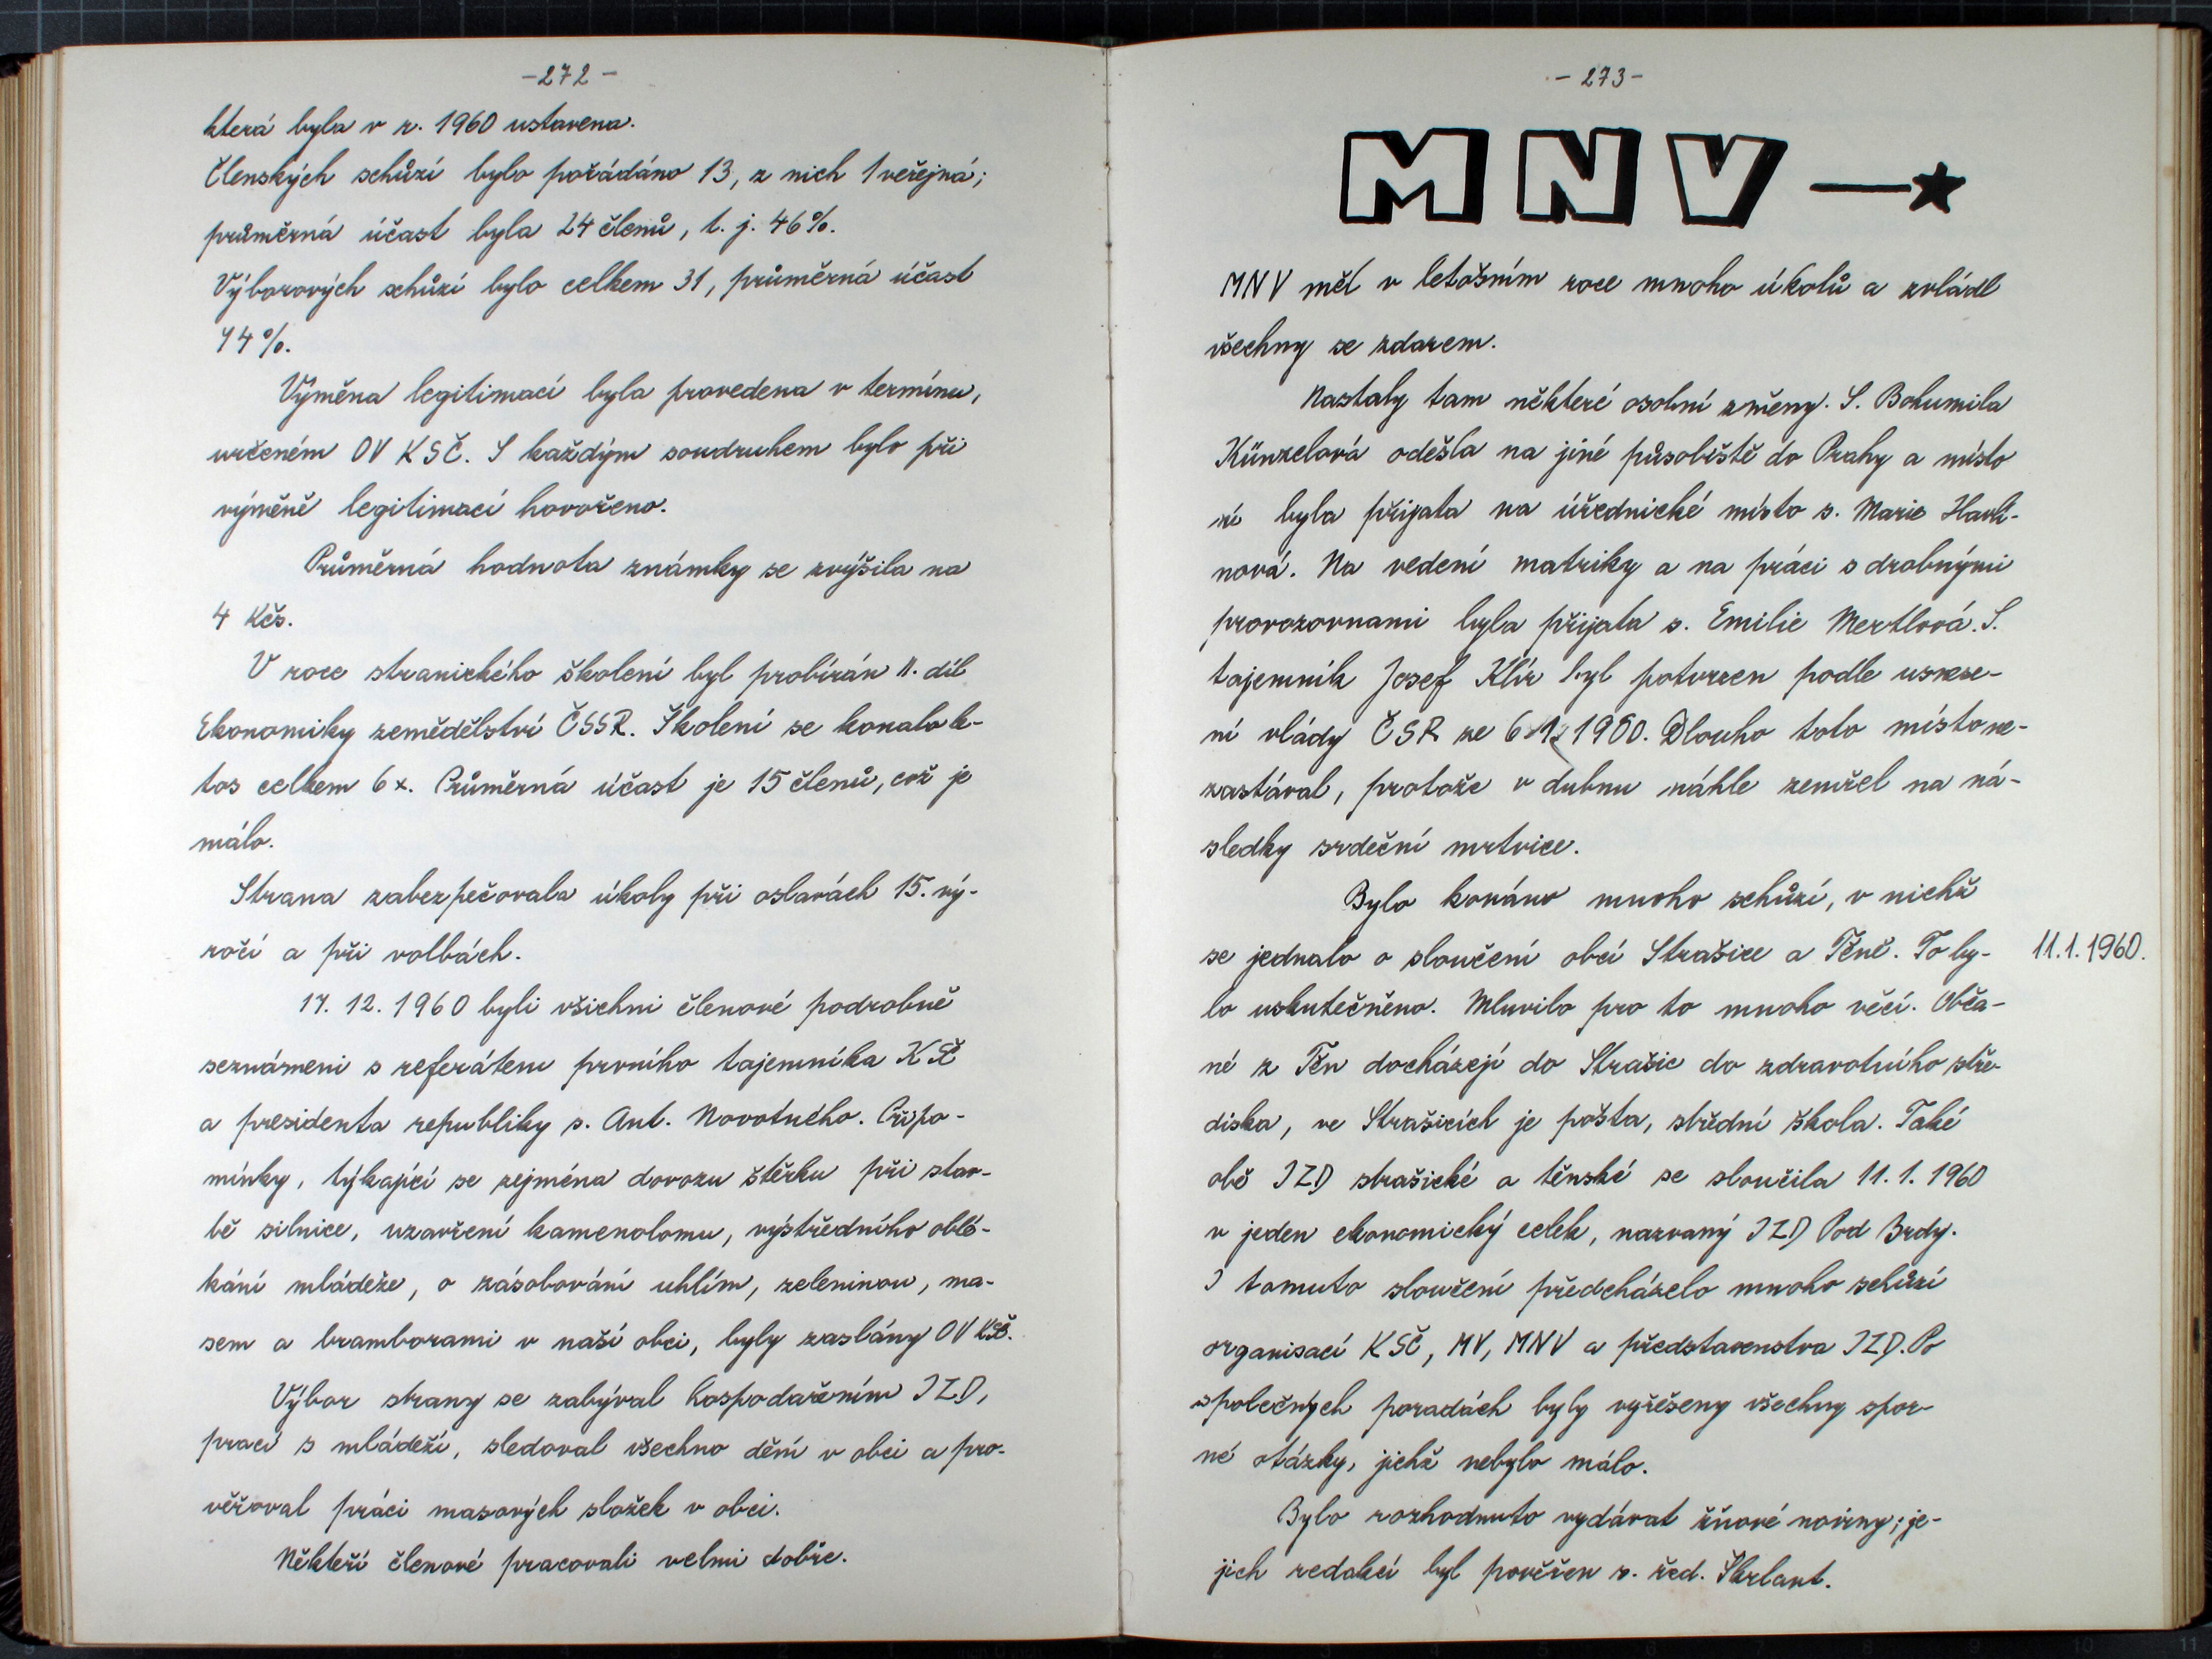 -272-
která byla v r. 1960 ustavena.
Členských schůzí bylo pořádáno 13, z nich 1 veřejná;
průměrná účast byla 24 členů, t. j. 46%.
Výborových schůzí bylo celkem 31, průměrná účast
74%.
Výměna legitimací byla provedena v termínu,
určeném OV KSČ. S každým soudruhem bylo při
výměně legitimací hovořeno.
Průměrná hodnota známky se zvýšila na
4 Kčs.
V roce stranického školení byl probírán II. díl
Ekonomiky zemědělství ČSSR. Školení se konalo le-
tos celkem 6x. Průměrná účast je 15 členů, což je
málo.
Strana zabezpečovala úkoly při oslavách 15. vý-
ročí a při volbách.
17. 12. 1960 byli všichni členové podrobně
seznámeni s referátem prvního tajemníka KSČ
a presidenta republiky s. Ant. Novotného. Připo-
mínky, týkající se zejména dovozu štěrku při stav-
bě silnice, uzavření kamenolomu, výstředního oblé-
kání mládeže, o zásobování uhlím, zeleninou, ma-
sem a bramborami v naší obci, byly zaslány OV KSČ.
Výbor strany se zabýval hospodařením JZD,
prací s mládeží, sledoval všechno dění v obci a pro-
věřoval práci masových složek v obci.
Někteří členové pracovali velmi dobře.
-273-
MNV
MNV měl v letošním roce mnoho úkolů a zvládl
všechny se zdarem.
Nastaly tam některé osobní změny. S. Bohumila
Künzelová odešla na jiné působiště do Prahy a místo
ní byla přijata na úřednické místo s. Marie Havlí-
nová. Na vedení matriky a na práci s drobnými
provozovnami byla přijata s. Emilie Mertlová. S.
tajemník Josef Klír byl potvrzen podle usnese-
ní vlády ČSR ze 6. 1. 1960. Dlouho toto místo ne-
zastával, protože v dubnu náhle zemřel na ná-
sledky srdeční mrtvice.
Bylo konáno mnoho schůzí, v nichž
se jednalo o sloučení obcí Strašice a Těně. To by-
11.1.1960.
lo uskutečněno. Mluvilo pro to mnoho věcí. Obča-
né z Těn docházejí do Strašic do zdravotního stře-
diska, ve Strašicích je pošta, střední škola. Také
obě JZD strašické a těnské se sloučila 11. 1. 1960
v jeden ekonomický celek, nazvaný JZD Pod Brdy.
I tomuto sloučení předcházelo mnoho schůzí
organisací KSČ, MV, MNV a představenstva JZD. Po
společných poradách byly vyřešeny všechny spor-
né otázky, jichž nebylo málo.
Bylo rozhodnuto vydávat žňové noviny; je-
jich redakcí byl pověřen s. řed. Škrlant.